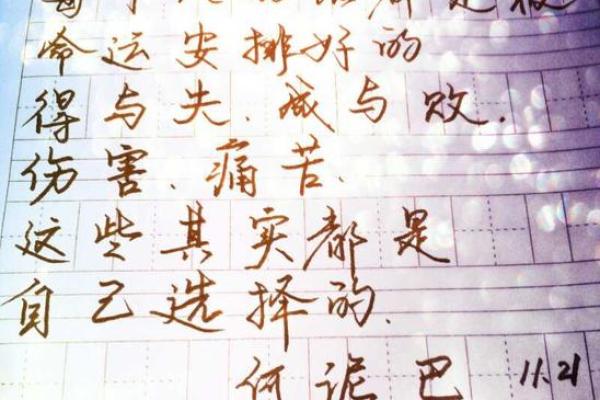 每个人 都是被
命运安排好的
得与失、成与败.
伤害、痛苦、
这些其实都是
自己选择的.
何泥巴 11.21